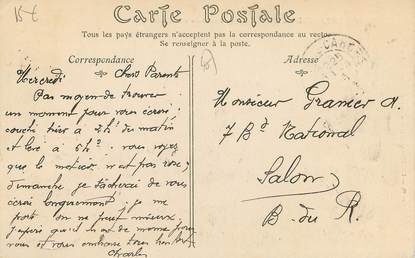 15€
Carte Postale
Tous les pays étrangers n'acceptent pas la correspondance au recto.
Se renseigner à la poste.
Correspondance
Adresse
Mercredi Chers Parents
Pas moyen de trouver
un moment pour vous écrire
couché hier à 2h du matin
et levé à 5h. vous voyez
que le métier n'est pas rose,
dimanche je tâcherai de vous
écrire longuement. je me
porte on ne peut mieux.
j'espère qu'il en est de même pour
vous et vous embrasse tous bien fort
Charles
Monsieur Granier A.
7 Bd National
Salon
B. du R.